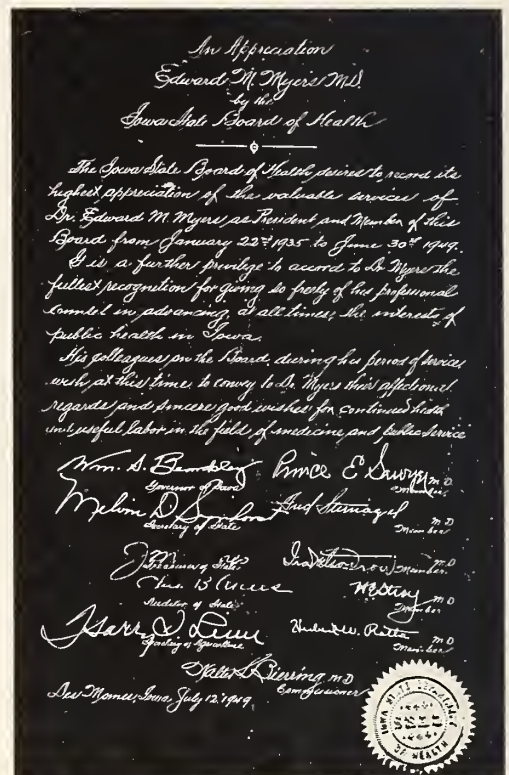 An Appreciation
Edward M. Myers M.D.
by the
Iowa State Board of Health
The Iowa State Board of Health desires to record its
highest appreciation of the valuable services of
Dr. Edward M. Myers as President and Member of this
Board from January 22nd 1935 to June 30th 1949.
It is a further privilege to accord to Dr. Myers the
fullest recognition for giving so freely of his professional
counsel in advancing, at all times, the interests of
public health in Iowa.
His colleagues on the Board, during his period of services
wish at this time, to convey to Dr. Myers their affectionate
regards and sincere good wishes for continued health
and useful labor in the field of medicine and public service
Wm. S. Beardsley
Governor of Iowa
Prince E. Sawyer M D
Member
Melvin D. Synhorst
Secretary of State
Fred Sternagel M D
Member
Treasurer of State
M D
Member
Auditor of State
M D
Member
Harry D. Linn
Secretary of Agriculture
Hubert W. Rathe M D
Member
Walter L. Bierring, M D
Commissioner
Des Moines, Iowa, July 12, 1949
IOWA STATE DEPARTMENT
SEAL
OF HEALTH